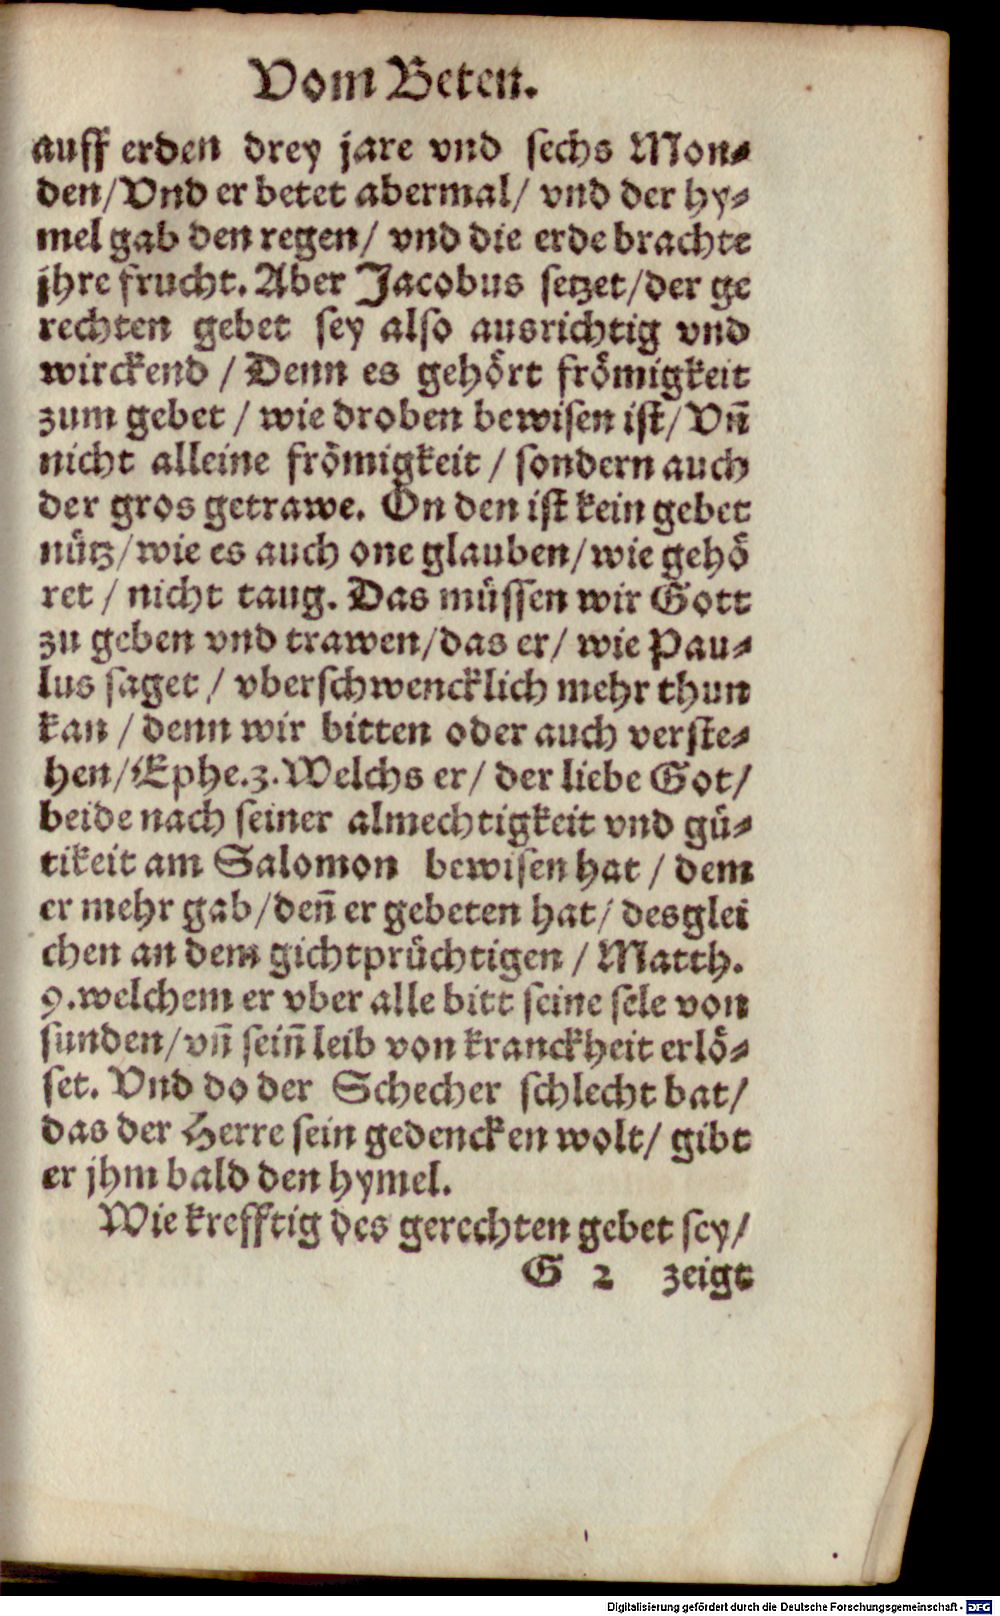 Vom Beten.
auff erden drey jare vnd sechs Mon⸗
den/Vnd er betet abermal/ vnd der hy⸗
mel gab den regen/ vnd die erde brachte
jhre frucht. Aber Jacobus setzet/der ge
rechten gebet sey also ausrichtig vnd
wirckend / Denn es gehört frömigkeit
zum gebet / wie droben bewisen ist/ Vñ
nicht alleine frömigkeit / sondern auch
der gros getrawe. On den ist kein gebet
nütz/wie es auch one glauben/wie gehö
ret / nicht taug. Das müssen wir Gott
zu geben vnd trawen/das er/ wie Pau⸗
lus saget / vberschwencklich mehr thun
kan / denn wir bitten oder auch verste⸗
hen/Ephe.3.Welchs er/ der liebe Got/
beide nach seiner almechtigkeit vnd gü⸗
tikeit am Salomon bewisen hat / dem
er mehr gab/deñ er gebeten hat/ desglei
chen an dem gichtprüchtigen / Matth.
9.welchem er vber alle bitt seine sele von
sunden/vñ seiñ leib von kranckheit erlö⸗
set. Vnd do der Schecher schlecht bat/
das der Herre sein gedencken wolt/ gibt
er jhm bald den hymel.
Wie krefftig des gerechten gebet sey/
G 2 zeigt
Digitalisierung gefördert durch die Deutsche Forschungsgemeinschaft - DFG